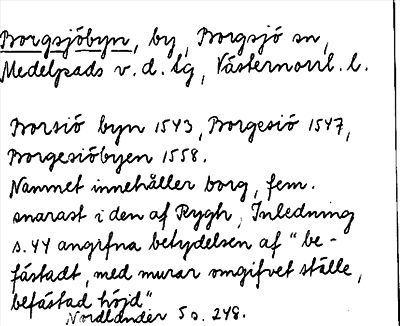 Borgsjöbyn, by, Borgsjö sn,
Medelpads v. d. tg, Västernorrl. l.
Borsiö byn 1543, Borgesiö 1547,
Borgesiöbyen 1558.
Namnet innehåller borg, fem.
snarast i den af Rygh, Inledning
s. 44 angifna betydelsen af "be-
fästadt, med murar omgifvet ställe,
befästad höjd"
Nordlander 5 s. 248.